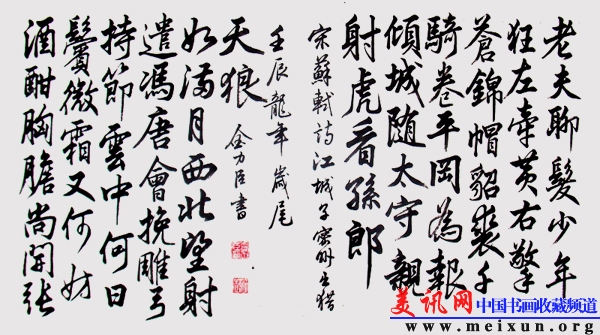 老夫聊髮少年
狂左牽黃右擎
蒼錦帽貂裘千
騎卷平岡為報
傾城隨太守親
射虎看孫郎
宋蘇軾詩江城子密州出獵
酒酣胸膽尚開張
鬢微霜又何妨
持節雲中何日
遣馮唐會挽雕弓
如滿月西北望射
天狼
壬辰龍年歲尾
金力臣書
美讯网
中国书画收藏频道
www.meixun.org